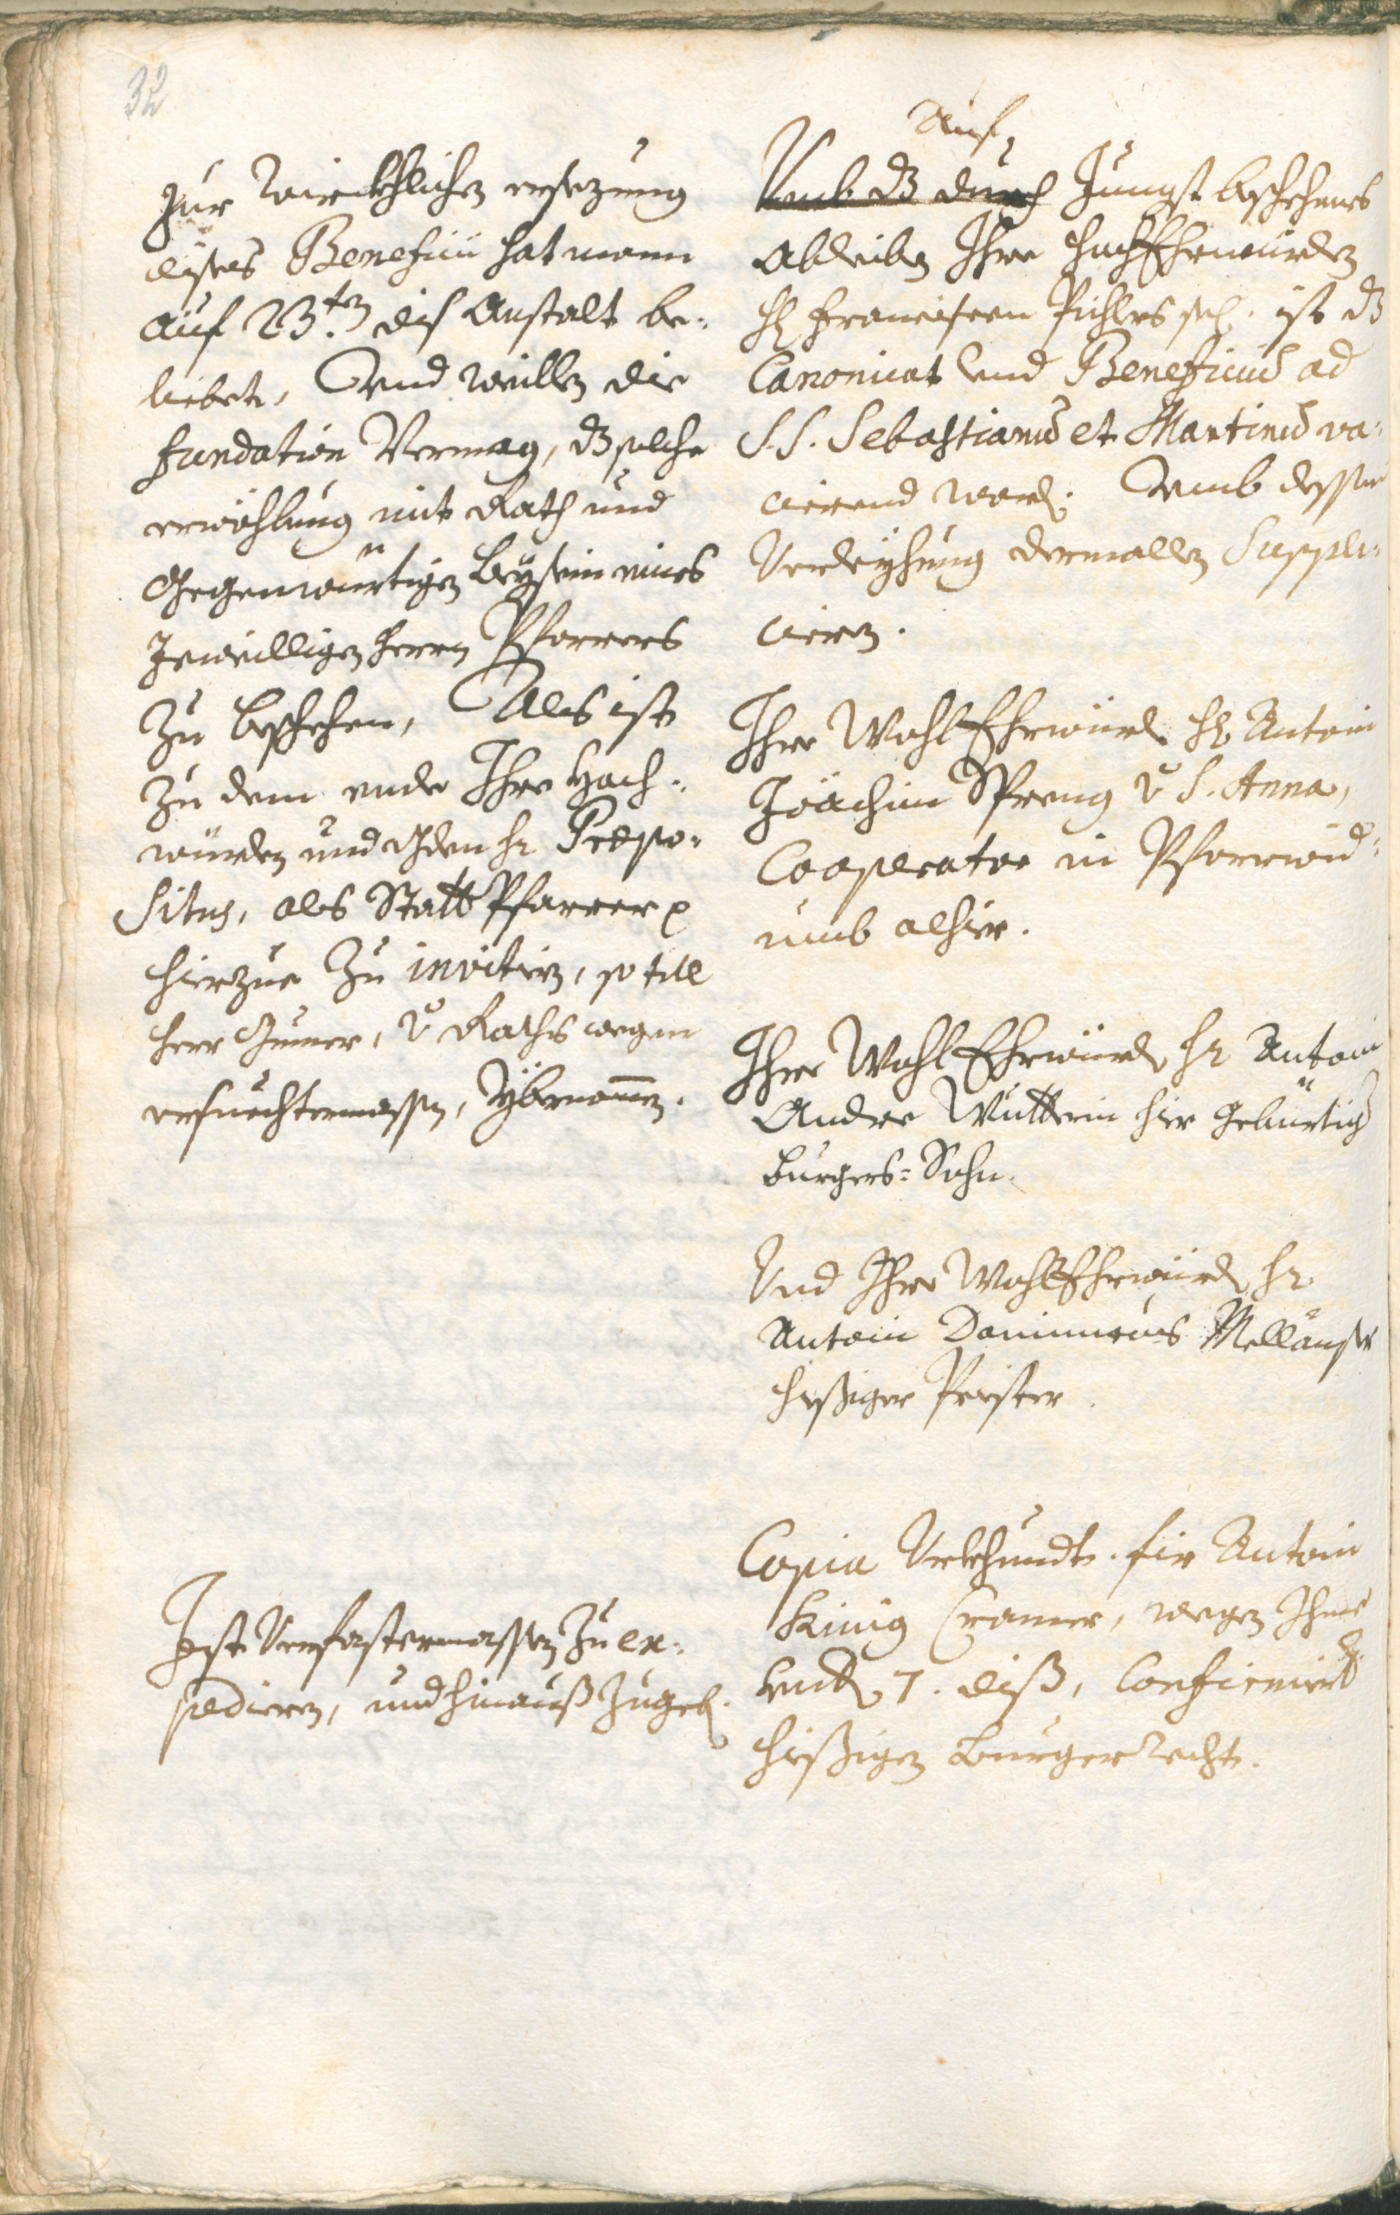 32
Zur würckhlichen ersezung
dises Beneficii hat mann
auf 23.ten diß Anstalt be-
liebet, Und weillen die
fundation Vermag, dz solche
erwöhlung mit Rath und
Gegenwürtigen Beysein eines
Jeweilligen herrn Pfarrers
zu beschehen, Als ist
zu dem ende Ihro Hoch-
würden und Gden hr Præpo-
situs, als Statt Pfarrer
hierzue zu invitirn, so titl
herr Jnner, v Raths wegen
ersuechtermassen, Ybernomen.
Ist Verfastermassen zu ex-
pedieren, und hinauß zugeb.
Auf
Umb dz durch Jungst beschehenes
Ableiben Ihro HochEhrwürden
H Franciscen Pichlers sel. ist dz
Canonicat und Beneficiu ad
S.S. Sebastianu et Martinu va-
cierend word. Umb dessen
Verleyhung dermallen Suppli-
ciern.
Ihro WohlEhrwürd. H Antoni
Joachim Spreng v S. Anna,
Cooperator in Pfarrwid-
umb alhier.
Ihro WohlEhrwürd hr Antoni
Andre Wutterin hier gebürtig
burgers-Sohn.
Und Ihro WohlEhrwürd hr
Antoni Dominicus Mellauner
hießiger Priester.
Copia Urkhundt. für Antoni
Künig Cramer, wegen Ihme
7. diß, Confirmirt
hießigen burgerrecht.